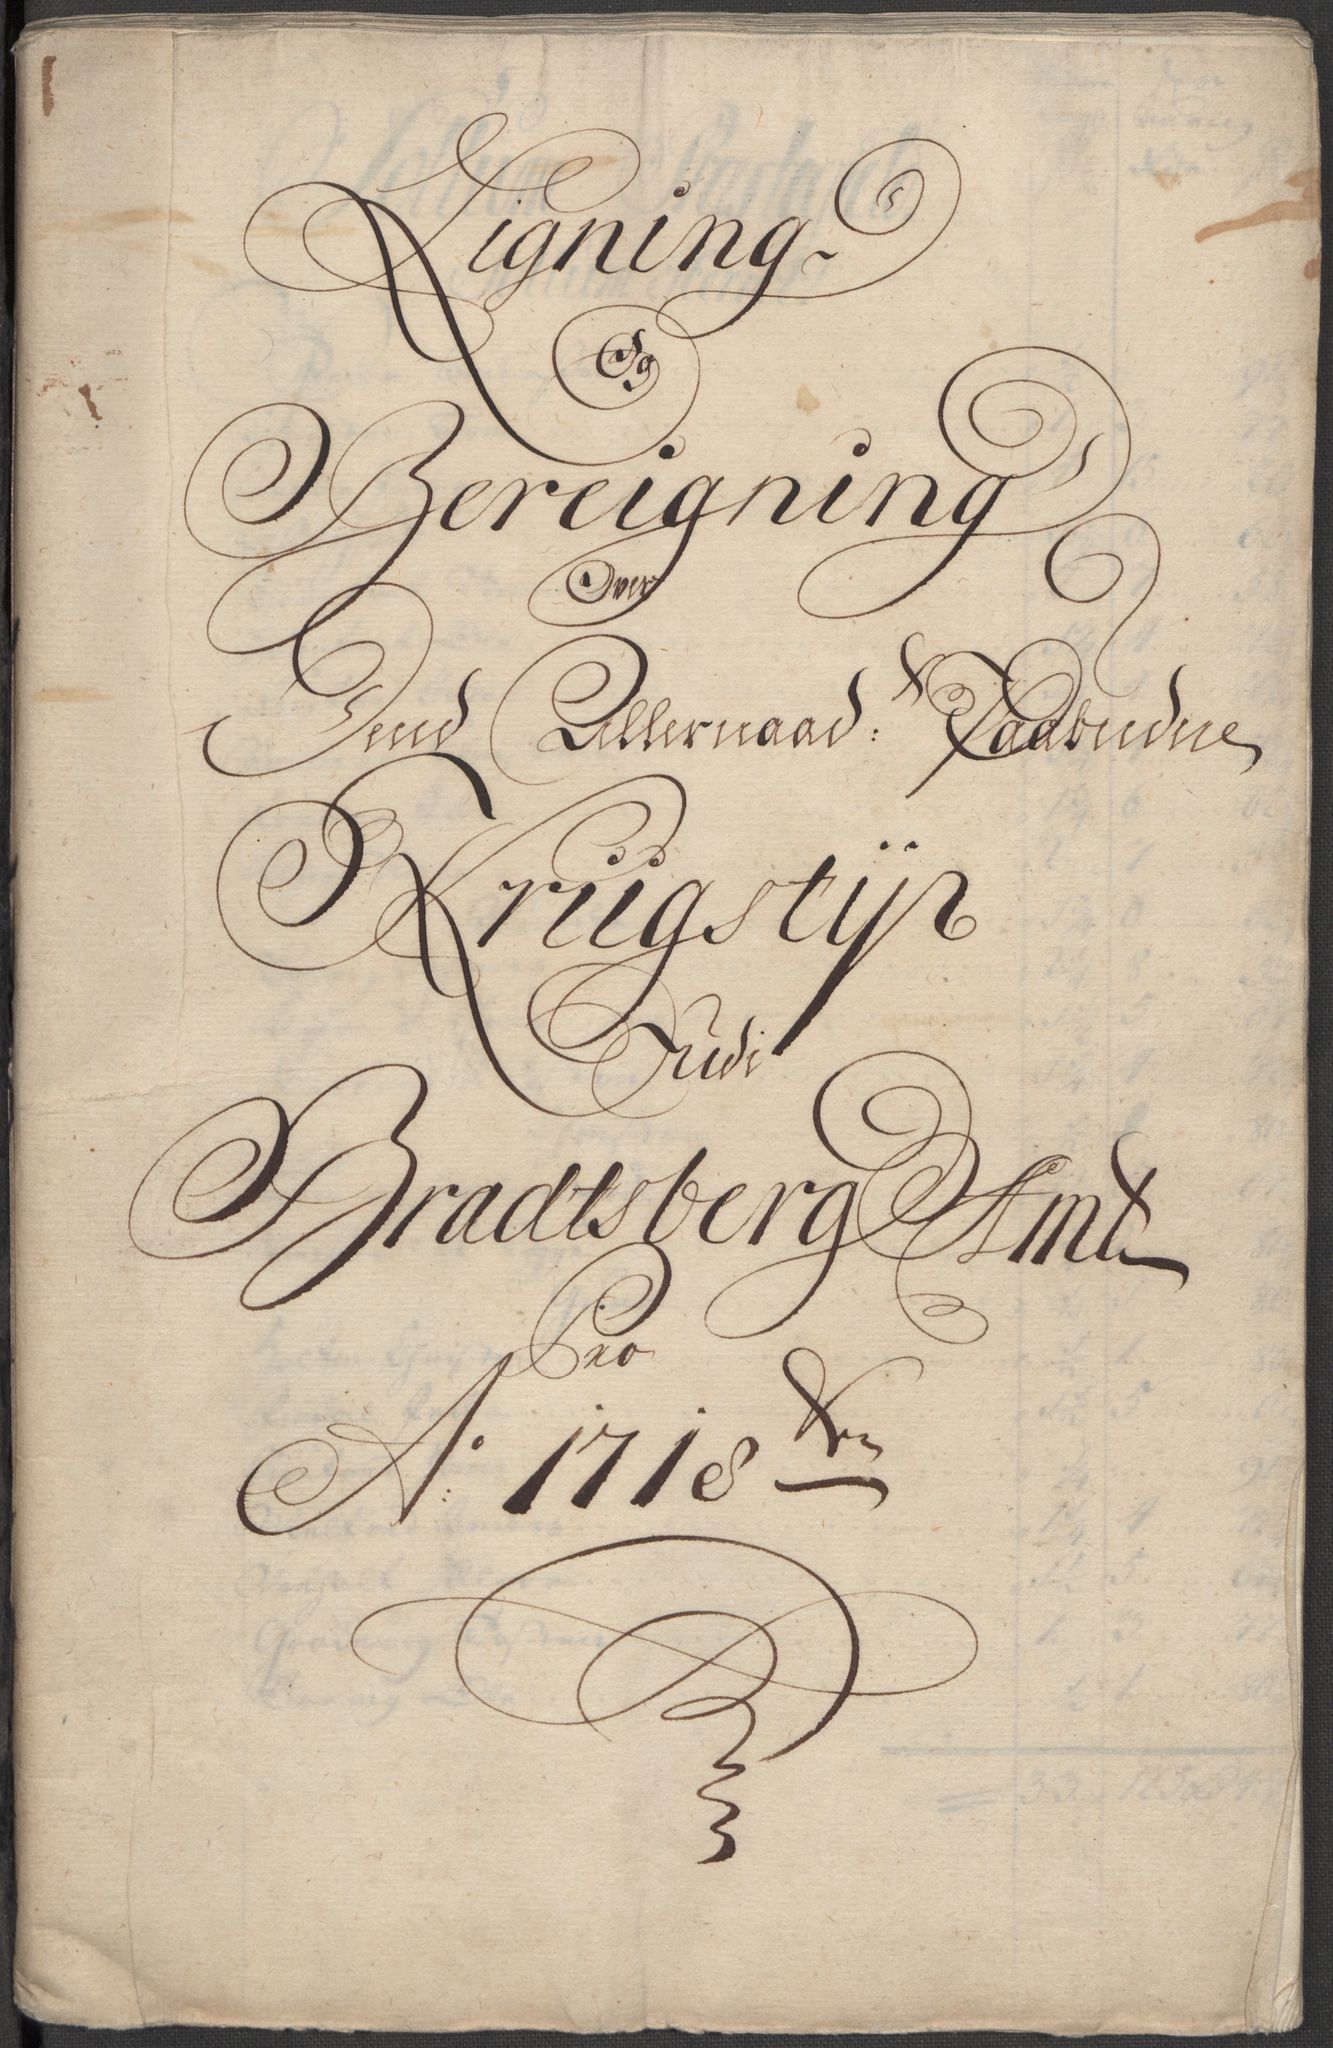 Ligning
Og
Bereigning
Over
Dend Allernaad:t Paabudne
Kriigstijr
Udi
Bradtsberg Amt
Pro
A:o 1718